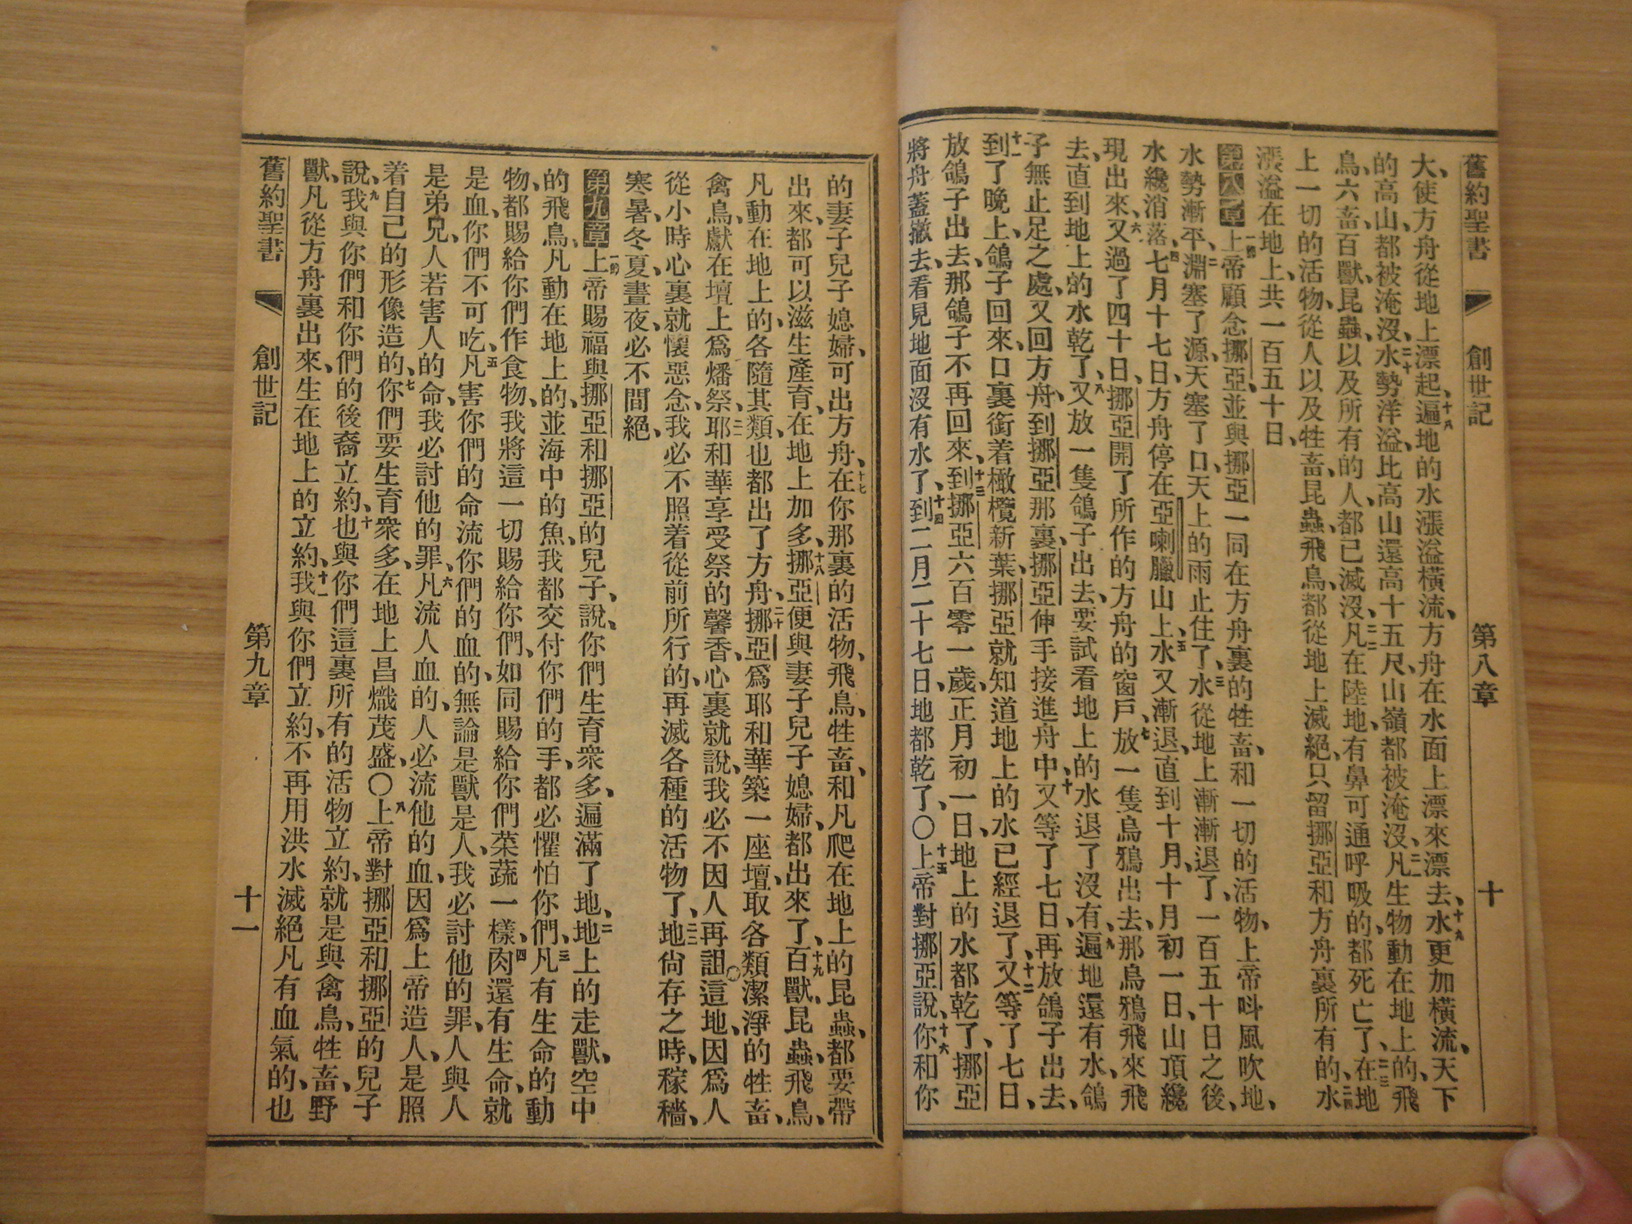 舊約聖書 創世記 第八章 十
大、使方舟從地上漂起、十八遍地的水漲溢橫流、方舟在水面上漂來漂去、十九水更加橫流、天下
的高山、都被淹沒、二十水勢洋溢、比高山還高十五尺、山嶺都被淹沒、二一凡生物動在地上的、飛
鳥、六畜、百獸、昆蟲、以及所有的人、都已滅沒、二二凡在陸地、有鼻可通呼吸的、都死亡了、二三在地
上一切的活物、從人以及牲畜、昆蟲、飛鳥、都從地上滅絕、只留挪亞和方舟裏所有的、二四水
漲溢在地上、共一百五十日、
第八章 一節上帝顧念挪亞、並與挪亞一同在方舟裏的牲畜、和一切的活物、上帝呌風吹地、
水勢漸平、二淵塞了源、天塞了口、天上的雨止住了、三水從地上漸漸退了、一百五十日之後、
水纔消落、四七月十七日、方舟停在亞喇臘山上、五水又漸退、直到十月、十月初一日、山頂纔
現出來、六又過了四十日、挪亞開了所作的方舟的窗戶、七放一隻烏鴉出去、那烏鴉飛來飛
去、直到地上的水乾了、八又放一隻鴿子出去、要試看地上的水退了沒有、九遍地還有水、鴿
子無止足之處、又回方舟、到挪亞那裏、挪亞伸手接進舟中、十又等了七日、再放鴿子出去、
十一到了晚上、鴿子回來、口裏銜着橄欖新葉、挪亞就知道地上的水已經退了、十二又等了七日、
放鴿子出去、那鴿子不再回來、十三到挪亞六百零一歲、正月初一日、地上的水都乾了、挪亞
將舟蓋撤去、看見地面沒有水了、十四到二月二十七日、地都乾了、〇十五上帝對挪亞說、十六你和你
的妻子兒子媳婦、可出方舟、十七在你那裏的活物、飛鳥、牲畜、和凡爬在地上的昆蟲、都要帶
出來、都可以滋生產育、在地上加多、十八挪亞便與妻子兒子媳婦、都出來了、十九百獸、昆蟲、飛鳥、
凡動在地上的、各隨其類、也都出了方舟、二十挪亞爲耶和華築一座壇、取各類潔淨的牲畜、
禽鳥、獻在壇上爲燔祭、二一耶和華享受祭的馨香、心裏就說、我必不因人再詛這地、因爲人
從小時心裏就懷惡念、我必不照着從前所行的、再滅各種的活物了、二二地尙存之時、稼穡、
寒暑、冬夏、晝夜、必不間絕、
第九章 一節上帝賜福與挪亞和挪亞的兒子、說、你們生育衆多、遍滿了地、二地上的走獸、空中
的飛鳥、凡動在地上的、並海中的魚、我都交付你們的手、都必懼怕你們、三凡有生命的動
物、都賜給你們作食物、我將這一切賜給你們、如同賜給你們菜蔬一樣、四肉還有生命、就
是血、你們不可吃、五凡害你們的命流你們的血的、無論是獸是人、我必討他的罪、人與人
是弟兄、人若害人的命、我必討他的罪、六凡流人血的、人必流他的血、因爲上帝造人、是照
着自己的形像造的、七你們要生育衆多、在地上昌熾茂盛、〇八上帝對挪亞和挪亞的兒子
說、九我與你們和你們的後裔立約、十也與你們這裏所有的活物立約、就是與禽鳥、牲畜、野
獸、凡從方舟裏出來、生在地上的立約、十一我與你們立約、不再用洪水滅絕凡有血氣的、也
舊約聖書 創世記 第九章 十一